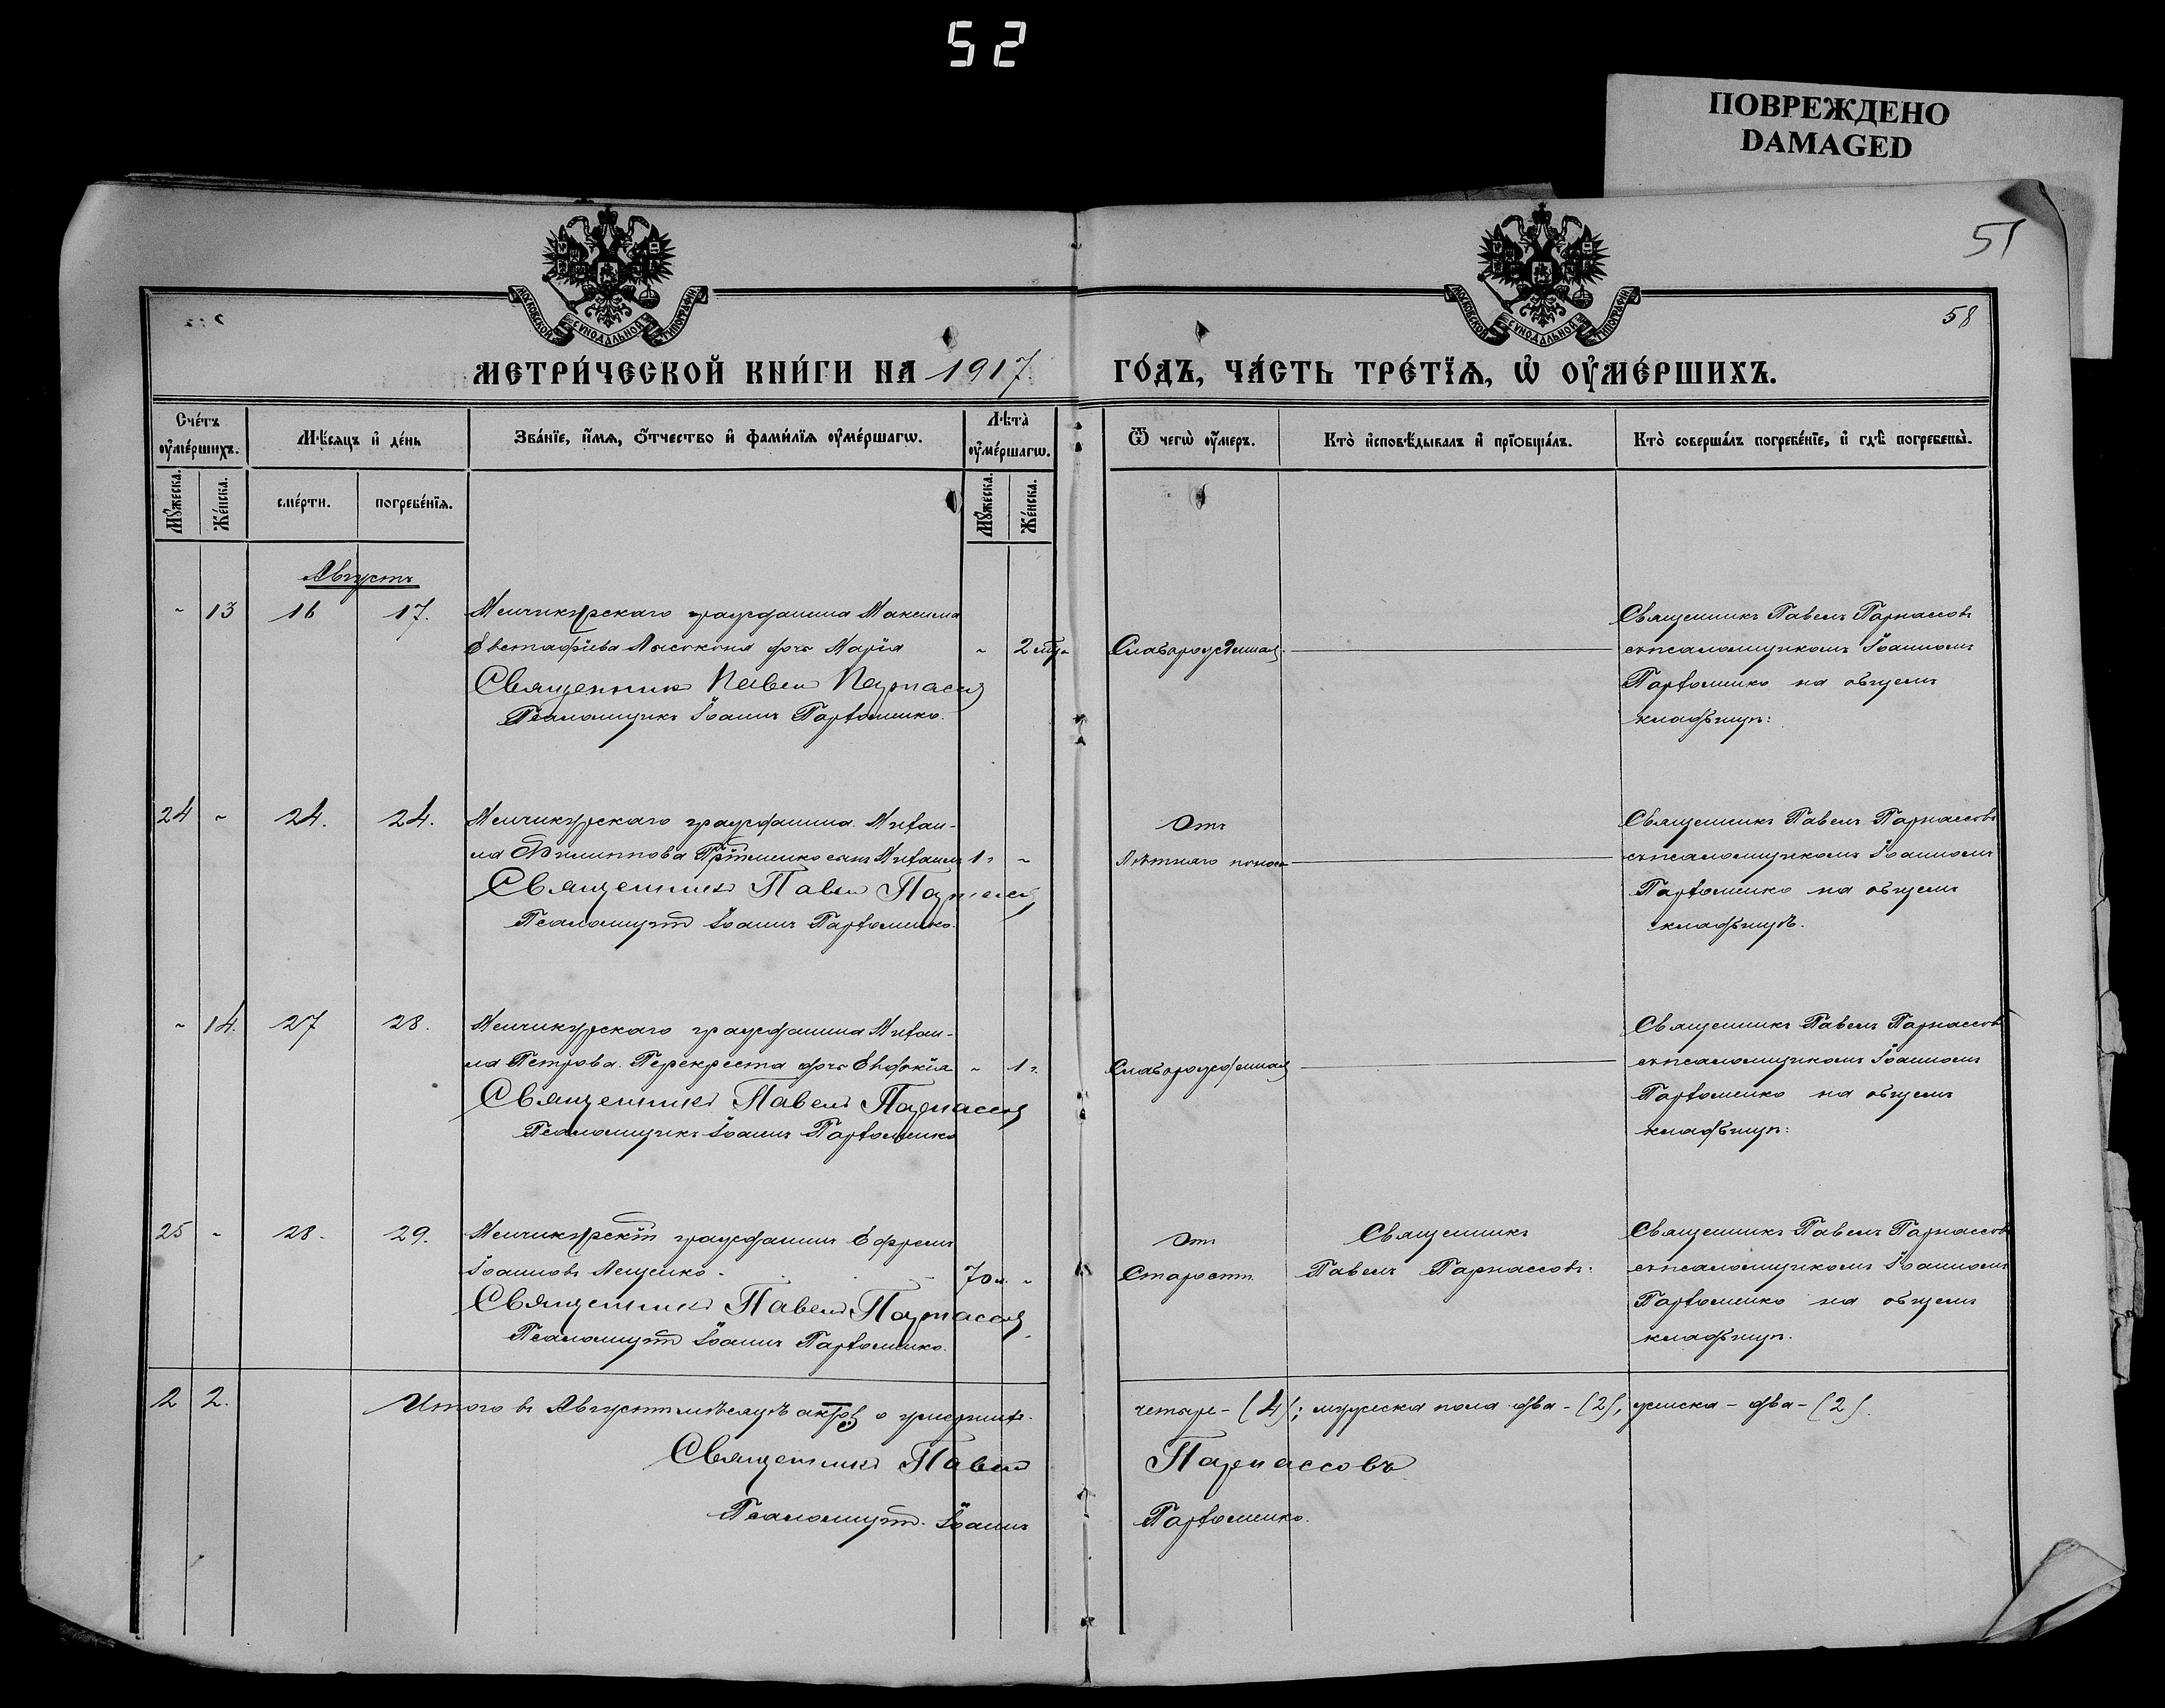 52
ПОВРЕЖДЕНО
DAMAGED
51
58
МОСКОВСКОЙ СѴНОДАЛЬНОЙ ТИПОГРАФІИ
МОСКОВСКОЙ СѴНОДАЛЬНОЙ ТИПОГРАФІИ
МЕТРИ́ЧЕСКОЙ КНИ́ГИ НА 1917. ГО́ДЪ, ЧА́СТЬ ТРЕ́ТЇѦ, Ѡ҆ ОУ҆МЕ́РШИХЪ.
Сче́тъ оу҆ме́ршихъ.
Мѣ́сѧцъ и҆ де́нь
Зва́нїе, и҆́мѧ, ѻ҆́тчество и҆ фами́лїѧ оу҆ме́ршагѡ.
Лѣ̀та оу҆ме́ршагѡ.
Ѿ чегѡ̀ оу҆́меръ.
Кто̀ и҆сповѣ́дывалъ и҆ прїѡбща́лъ.
Кто̀ соверша́лъ погребе́нїе, и҆ гдѣ̀ погребены̀.
Мꙋ́жеска.
Же́нска.
сме́рти.
погребе́нїѧ.
Мꙋ́жеска.
Же́нска.
Августъ
13 16 17. Менчикурскаго гражданина Максима
Евстафіева дочь Марія 2
Священникъ Павелъ Парнассовъ
Псаломщикъ Іоаннъ Пархоменко.
Слаборожденная
Священникъ Павелъ Парнассовъ
съ псаломщикомъ Іоанномъ
Пархоменко на общемъ
кладбищѣ:
24 24. 24. Менчикурскаго гражданина Михаи-
ла Филиппова сынъ Михаилъ 1 г.
Священникъ Павелъ Парнассовъ
Псаломщикъ Іоаннъ Пархоменко.
Отъ
Лѣтняго поноса
Священникъ Павелъ Парнассовъ
съ псаломщикомъ Іоанномъ
Пархоменко на общемъ
кладбищѣ.
14. 27 28. Менчикурскаго гражданина Михаи-
ла Петрова Перекреста дочь Евдокія 1 г.
Священникъ Павелъ Парнассовъ
Псаломщикъ Іоаннъ Пархоменко
Слаборожденная
Священникъ Павелъ Парнассовъ
съ псаломщикомъ Іоанномъ
Пархоменко на общемъ
кладбищѣ:
25 28. 29. Менчикурскій гражданинъ Ефремъ
Іоанновъ Лещенко. 70 л.
Священникъ Павелъ Парнассовъ
Псаломщикъ Іоаннъ Пархоменко.
Отъ
Старости
Священникъ
Павелъ Парнассовъ.
Священникъ Павелъ Парнассовъ
съ псаломщикомъ Іоанномъ
Пархоменко на общемъ
кладбищѣ.
2 2. Итого въ Августѣ мѣсяцѣ актовъ о умершихъ четыре - (4); мужеска пола два - (2), женска - два - (2).
Священникъ Павелъ Парнассовъ
Псаломщикъ Іоаннъ Пархоменко.